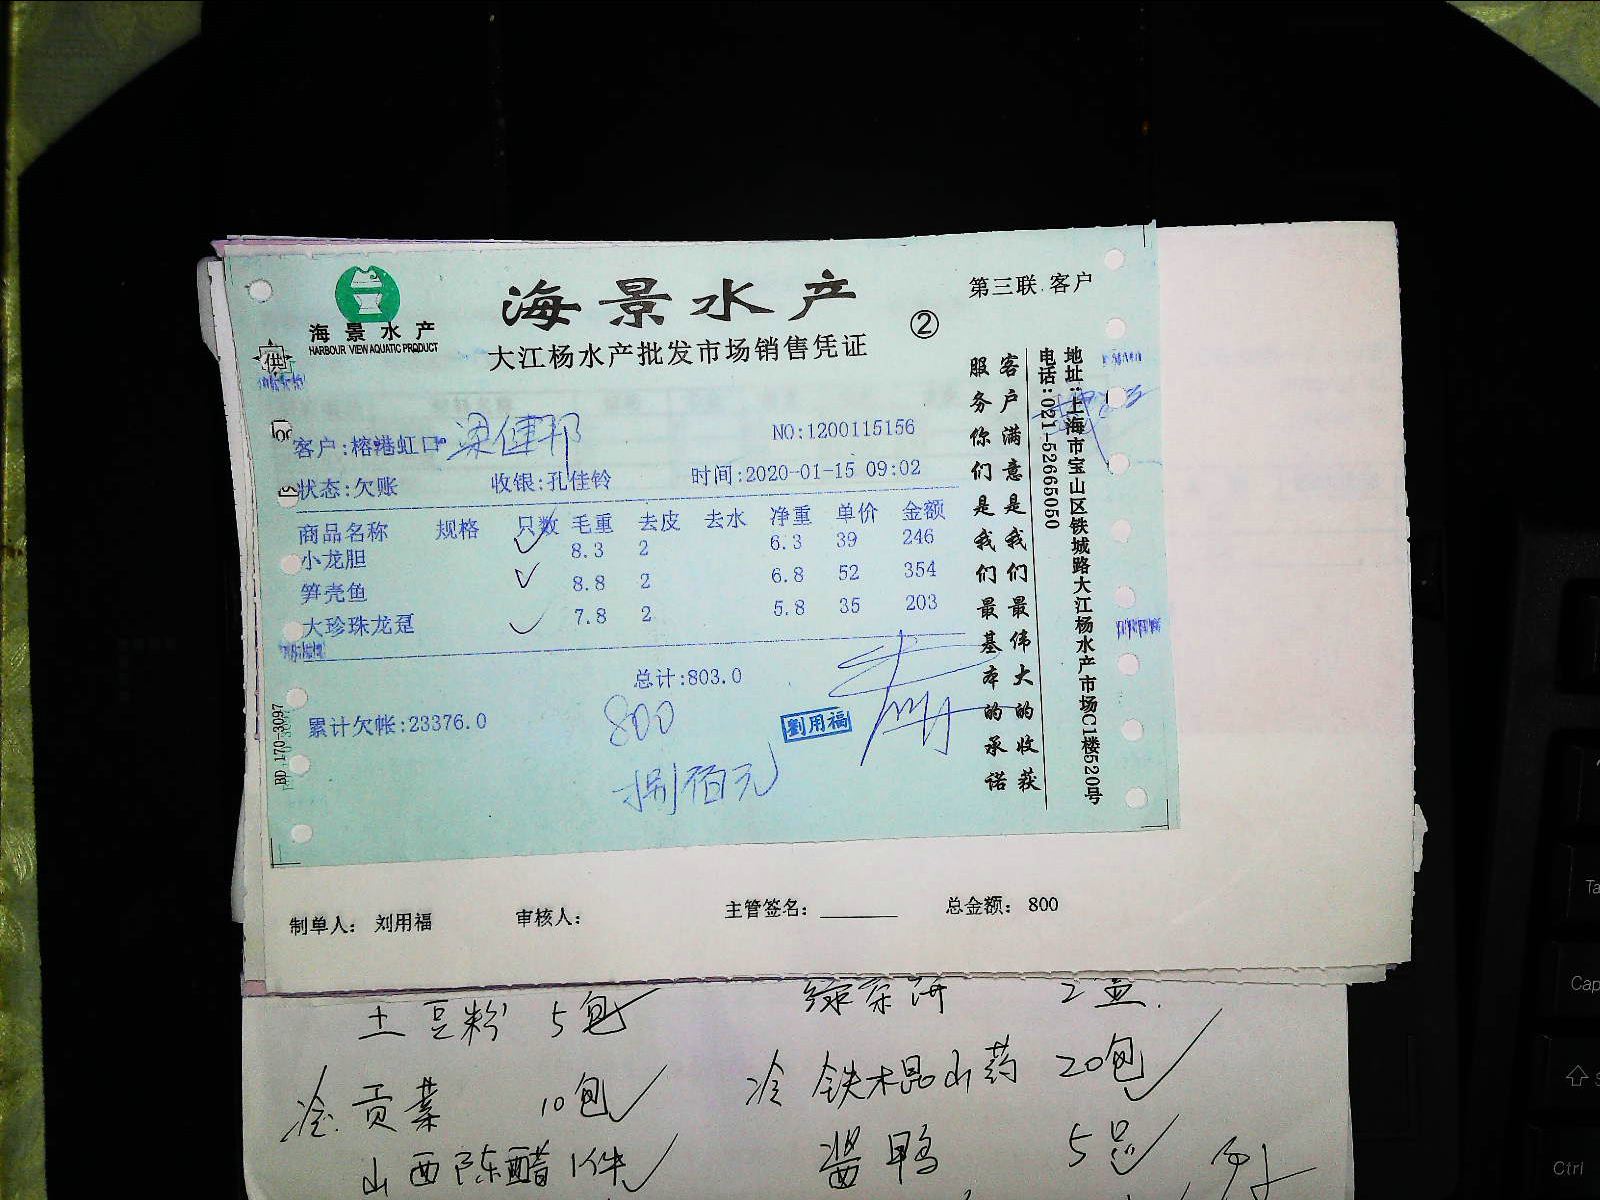 海景水产
HARBOUR VIEW AQUATIC PRODUCT
供
海景水产
大江杨水产批发市场销售凭证
②
第三联 客户
客户:榕港虹口 梁健邦
NO:1200115156
状态:欠账 收银:孔佳铃 时间:2020-01-15 09:02
商品名称 规格 只数 毛重 去皮 去水 净重 单价 金额
小龙胆 8.3 2 6.3 39 246
笋壳鱼 8.8 2 6.8 52 354
大珍珠龙趸 7.8 2 5.8 35 203
总计:803.0
累计欠帐:23376.0
800
捌佰元
劉用福
客户满意是我们最伟大的收获
服务你们是我们最基本的承诺
地址:上海市宝山区铁城路大江杨水产市场C1楼520号
电话:021-52665050
BD 170-3097
制单人: 刘用福 审核人: 主管签名: 总金额: 800
土豆粉 5包
绿茶饼 2盒
冷 贡菜 10包
冷 铁木棍山药 20包
山西陈醋 1件
酱鸭 5只
Cap
Ctrl